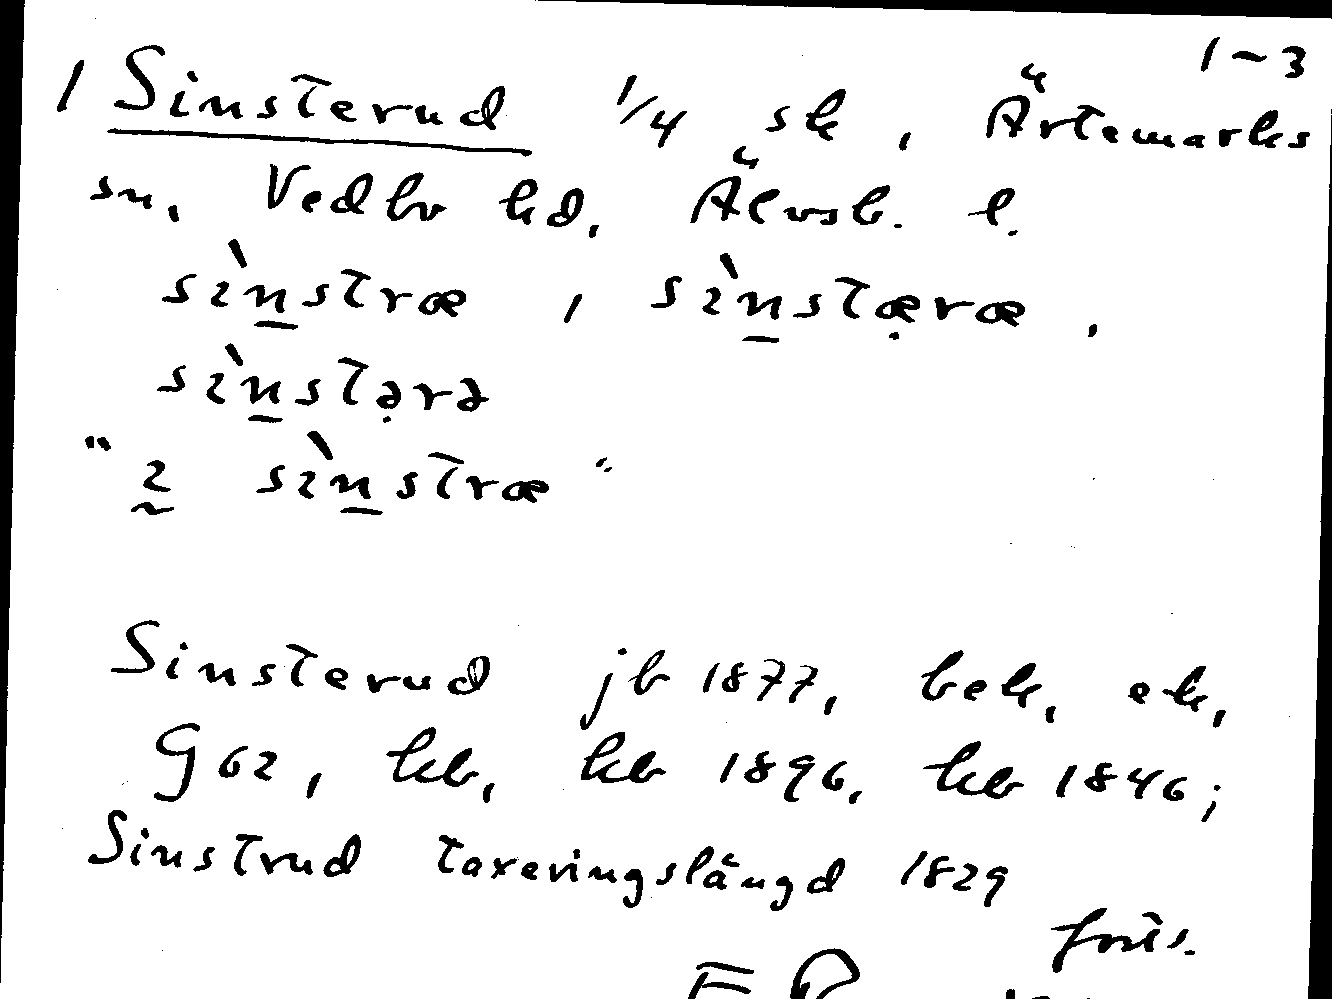 1-3
1 Sinsterud 1/4 sk, Ärtemarks
sn, Vedbo hd, Älvsb. l.
sìn̲stræ, sìn̲stæ̣ræ,
sìn̲stə̣rə
"ı̰ sìn̲stræ"
Sinsterud jb 1877, bek, ek,
G 62, kb, kb 1896, kb 1846;
Sinstrud taxeringslängd 1829
forts.